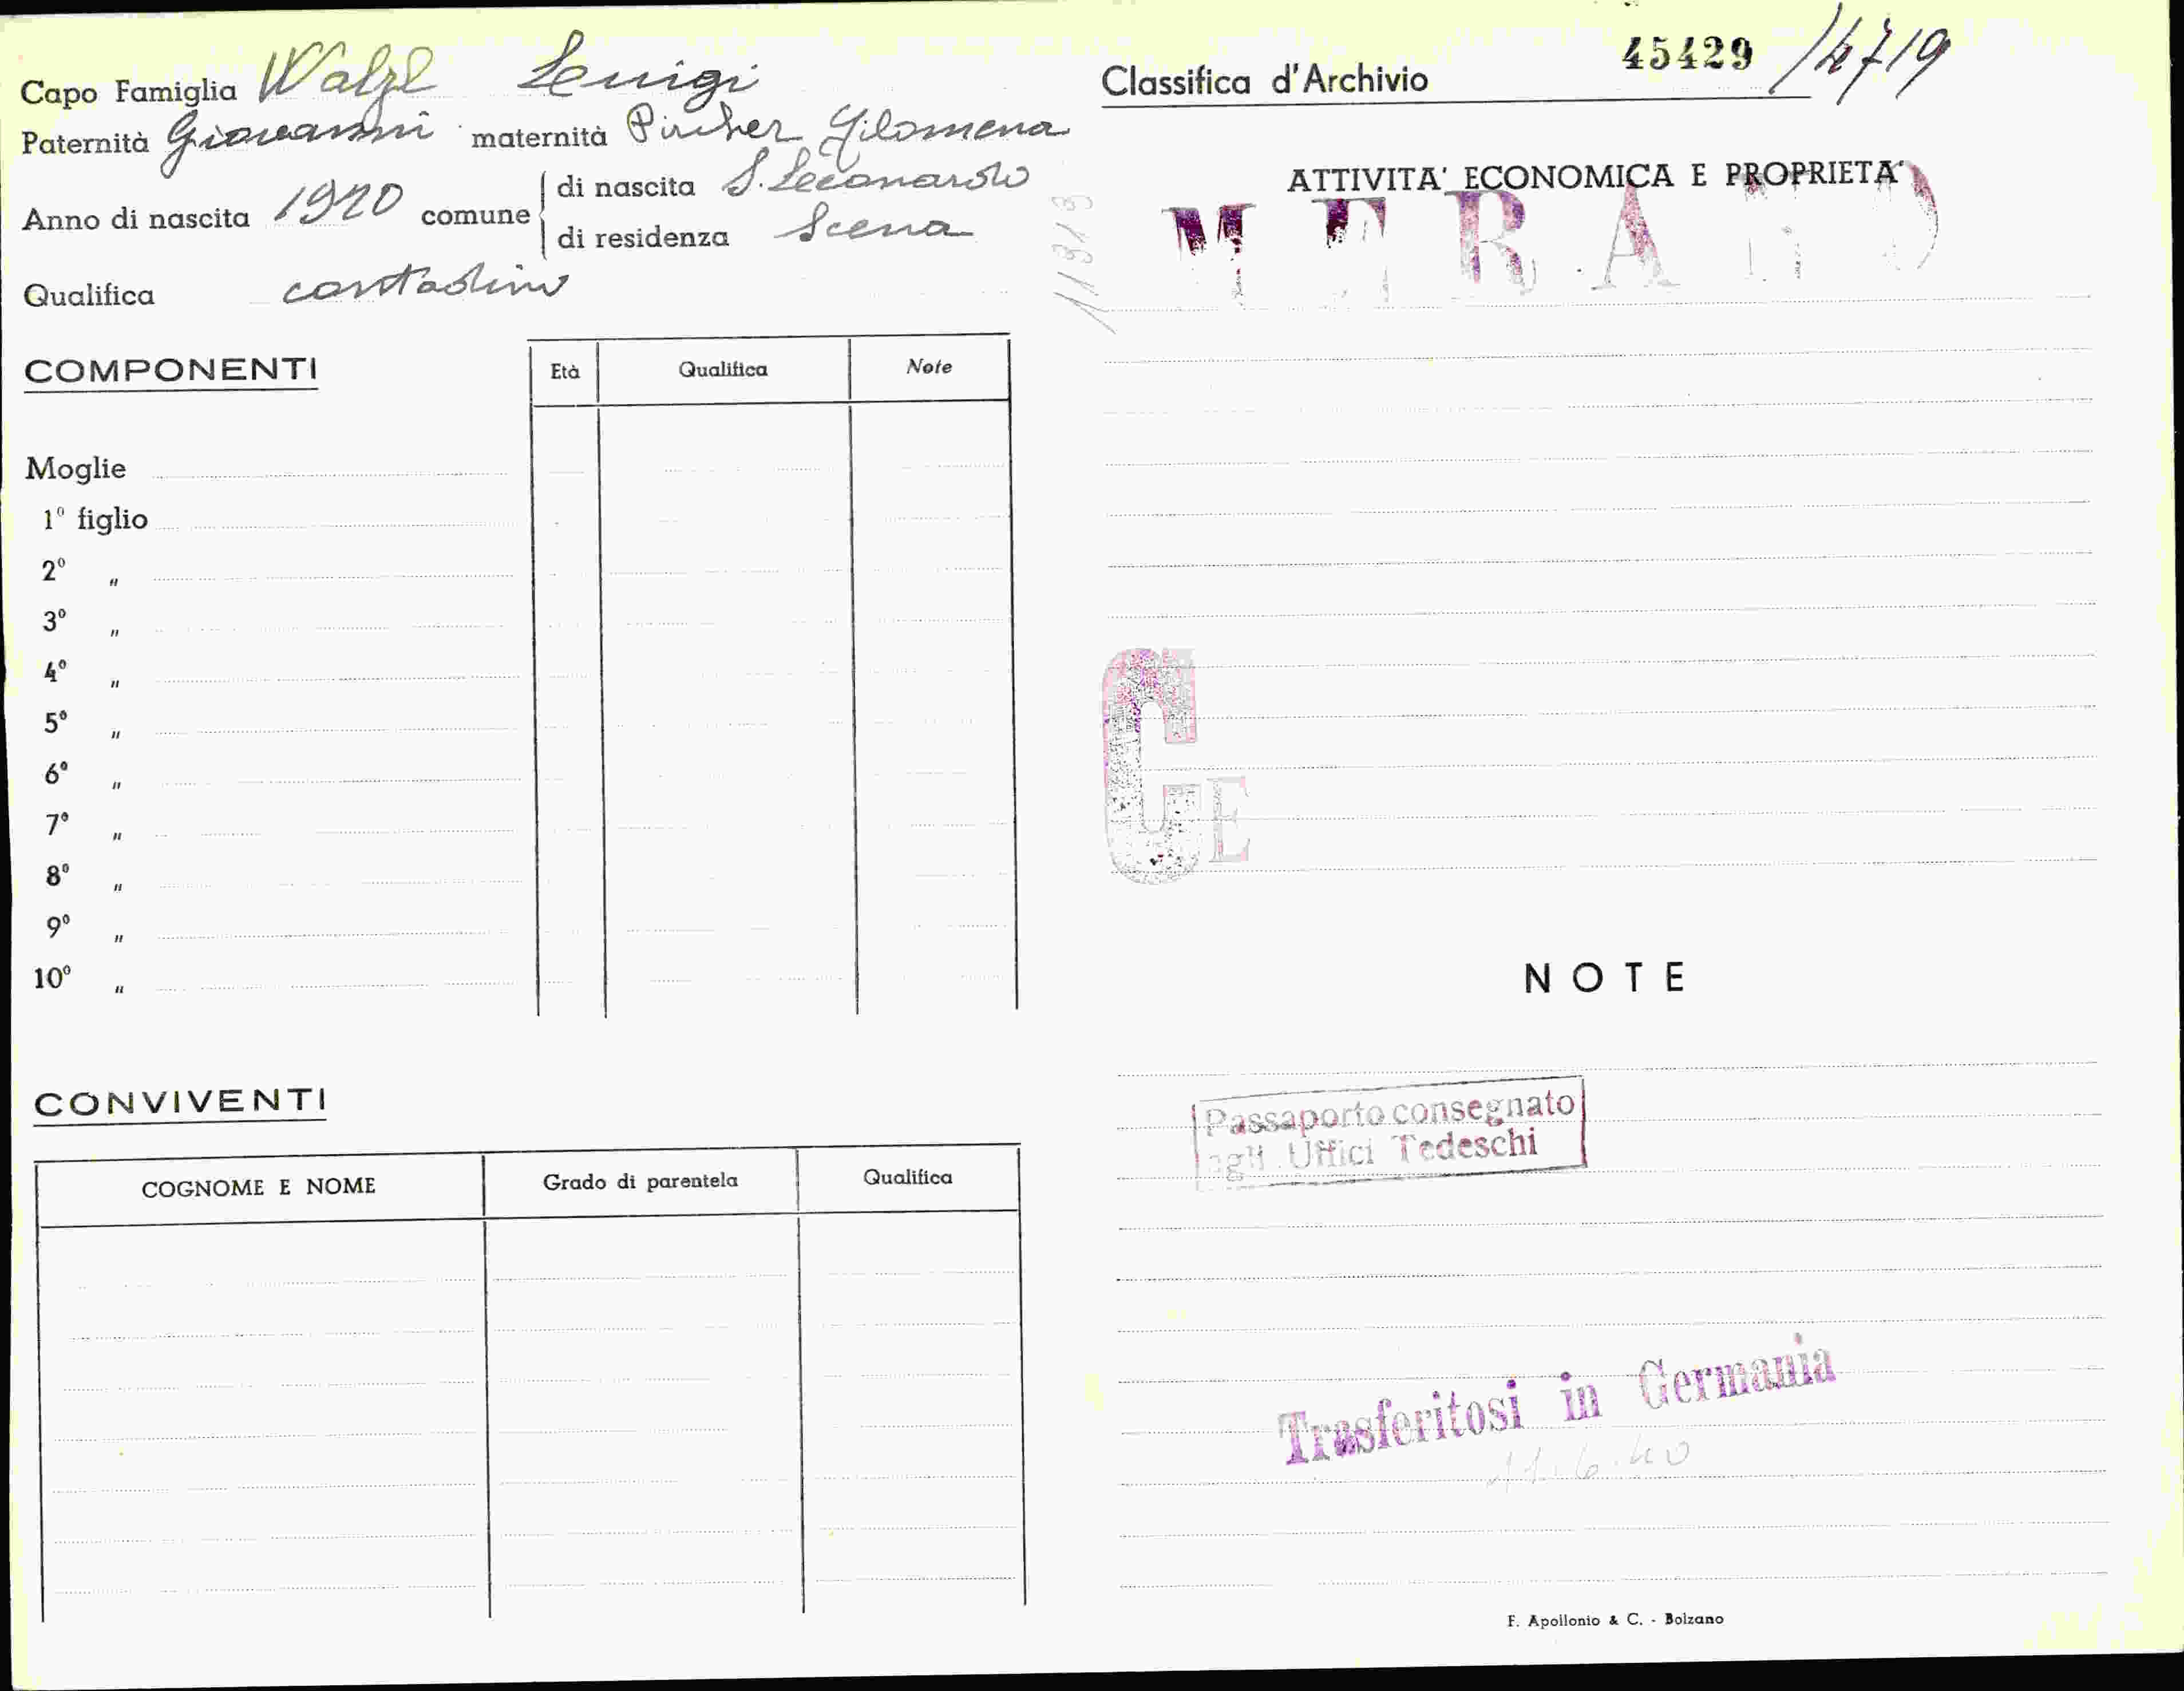 Capo Famiglia Walzl Luigi
Paternità Giovanni maternità Pircher Filomena
Anno di nascita 1920 comune di nascita S. Leonardo
di residenza Scena
Qualifica contadino
COMPONENTI
Età Qualifica Note
Moglie
1º figlio
2º "
3º "
4º "
5º "
6º "
7º "
8º "
9º "
10º "
CONVIVENTI
COGNOME E NOME Grado di parentela Qualifica
11313
Classifica d'Archivio 45429 /4719
ATTIVITA' ECONOMICA E PROPRIETA'
MERANO
C E
NOTE
Passaporto consegnato
agli Uffici Tedeschi
Trasferitosi in Germania
11.6.40
F. Apollonio & C. - Bolzano